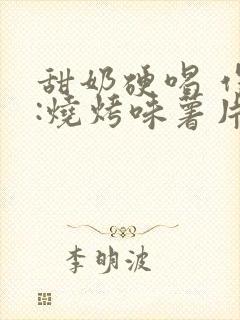 甜奶硬唱
:燒烤味薯片
李明波